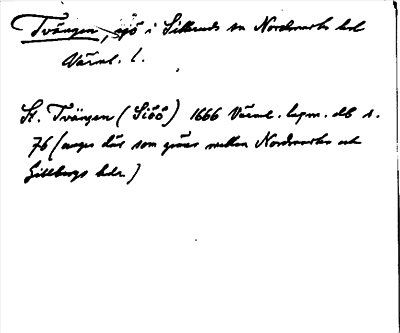 Tvängen, sjö i Sillerud sn Nordmarks hd
Värml. l.
St. Tvängen (Siöö) 1666 Värml. lapm. db s.
76 (anges där som gräns mellan Nordmarks och
Gillbergs hdr)